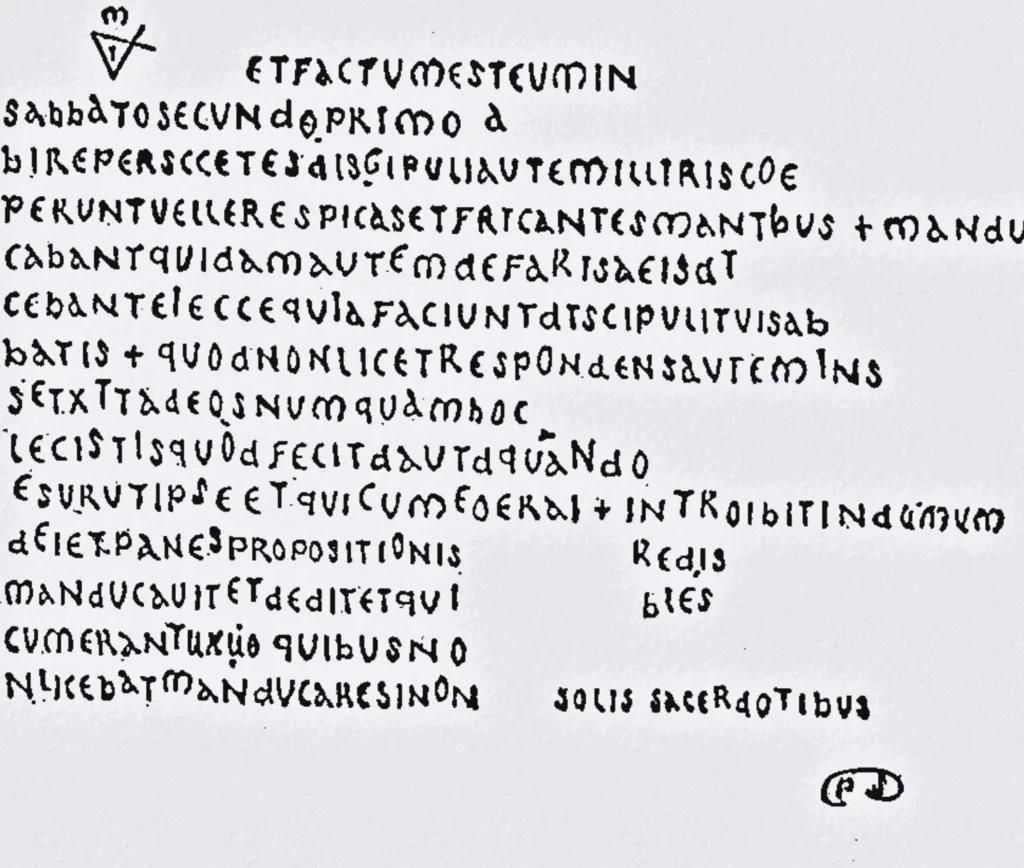 M
T
ETFACTUMESTEUMIN
SABBATOSECUNDOPRIMO A
BIREPERSCCETESDISGIPULIAUTEMILLIRISCOE
PERUNTVELLERESPICASETFRICANTESMANTBUS + MANDU
CABANTQUIDAMAUTEMDEFARISAEISDT
CEBANTEIECCEQUIAFACIUNTDTSCIPULITUISAB
BATIS + QUODNONLICETRESPONDENSAUTEMINS
SETXTTADEOSNUMQUAMHOC
LECISTISQUODFECITDAUTDQUANDO
ESURUTIPSEETQUICUMFOERAI + INTROIBITINDUMUM
DEIETPANESPROPOSITIONIS REDIS
MANDUCAUITETDEDITETQUI BLES
CUMERANTUXUO QUIBUSNO
NLICEBATMANDUCARESINON SOLIS SACERDOTIBUS
PS